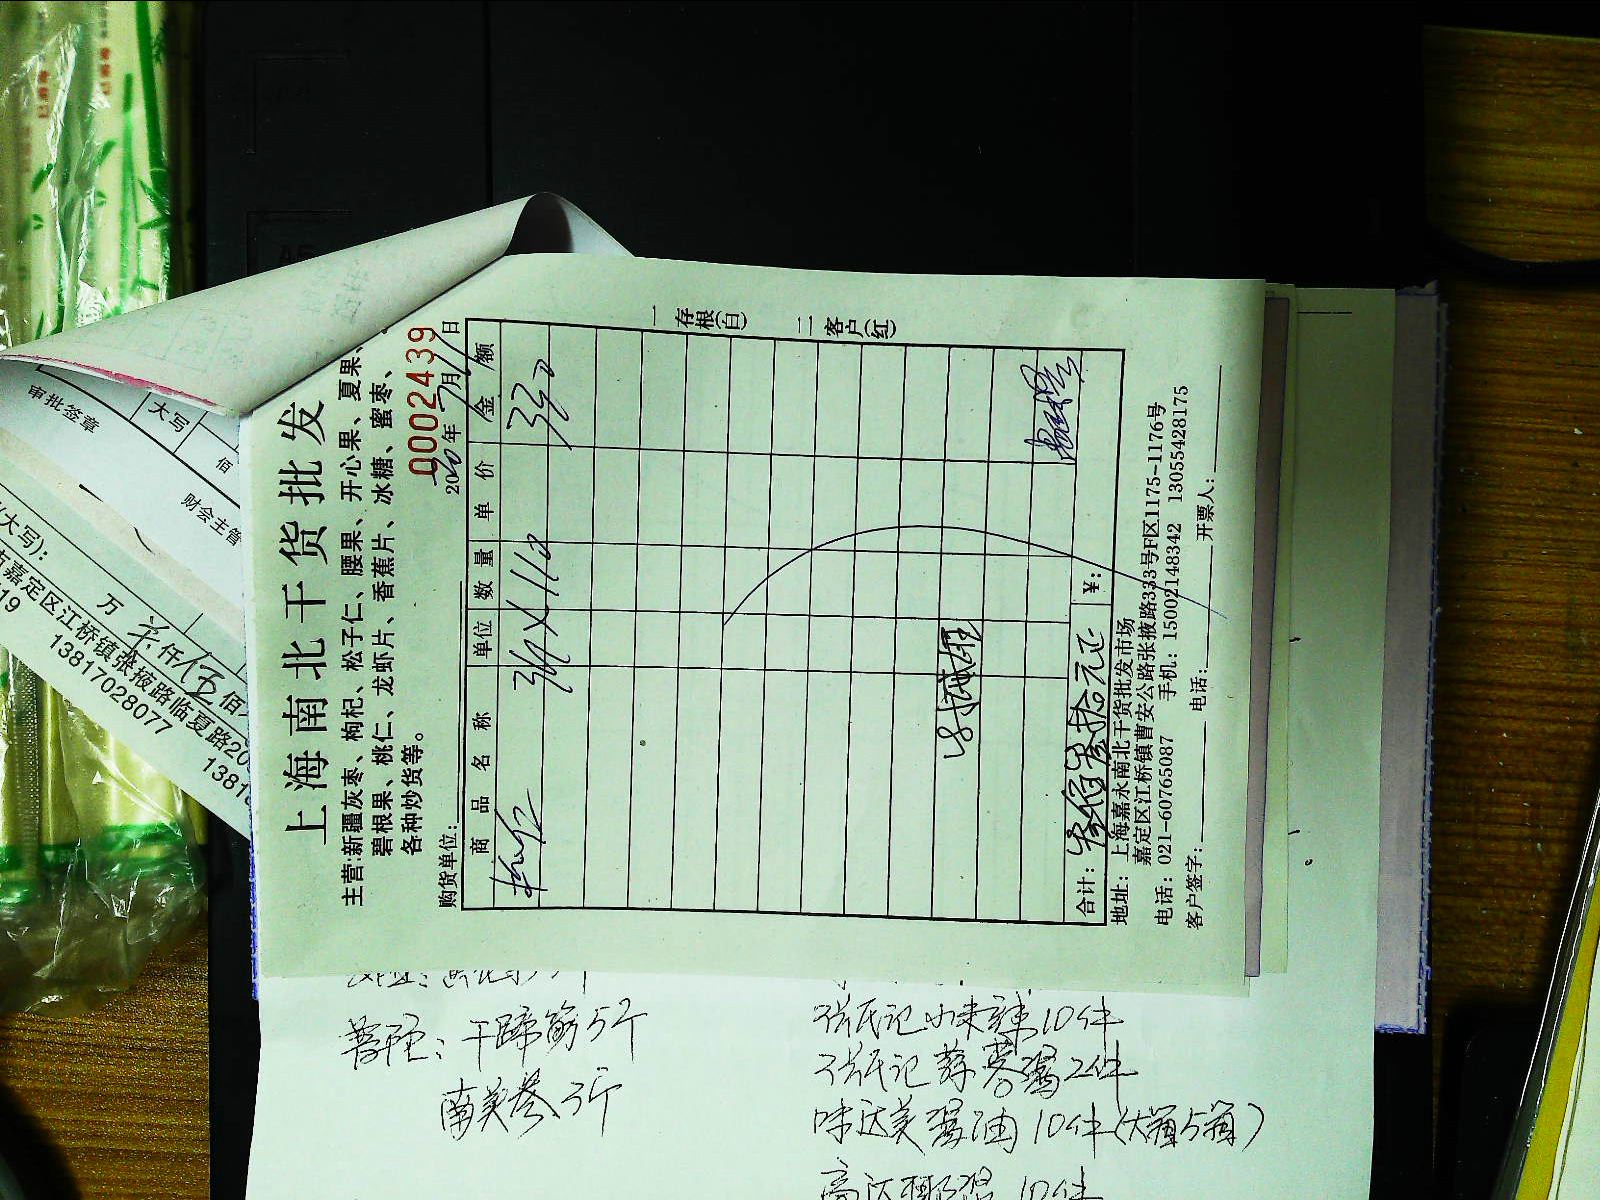 上海南北干货批发
主营:新疆灰枣、枸杞、松子仁、腰果、开心果、夏果、
碧根果、桃仁、龙虾片、香蕉片、冰糖、蜜枣、
各种炒货等。
0002439
购货单位: 2020年7月 日
商品名称 单位 数量 单价 金额
3斤×110 330
合计: 叁佰叁拾元正 ¥:
地址: 上海嘉永南北干货批发市场
嘉定区江桥镇曹安公路张掖路333号F区1175-1176号
电话: 021-60765087 手机: 15002148342 13055428175
客户签字: 电话: 开票人:
一存根(白) 二客户(红)
审批签章
大写
佰
财会主管
(大写):
万 仟伍佰
嘉定区江桥镇张掖路临夏路20
19
13817028077
普陀: 干蹄筋5斤
南美参3斤
张氏记小米辣10件
张氏记蒜蓉酱2件
味达美酱油10件(大箱5箱)
10件